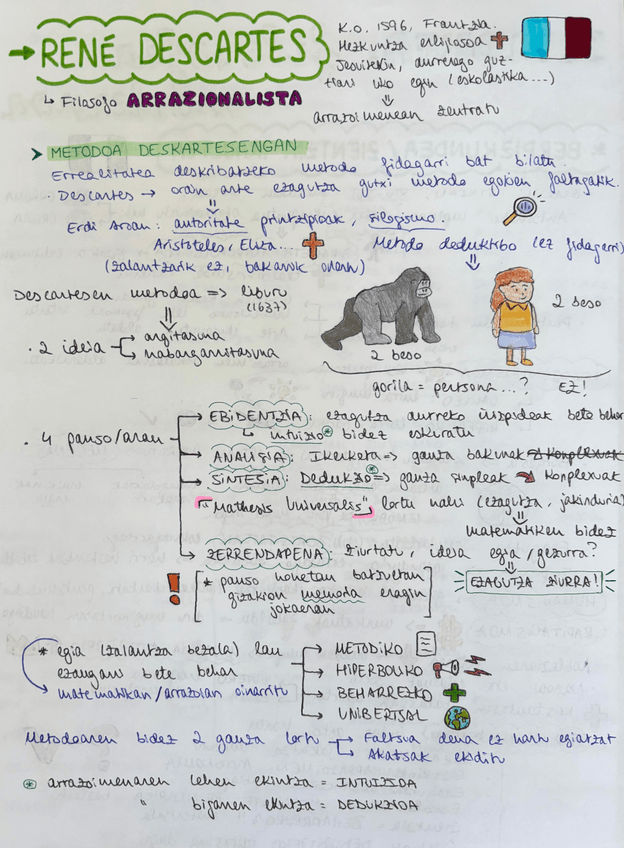 → RENÉ DESCARTES
↳ Filosofo ARRAZIONALISTA
K.o. 1596, Frantzia.
Hezkuntza erlijiosoa
Jesuitekin, aurrerago guz-
tiari uko egin (eskolastika...)
⇓
arrazoimenean zentratu
➤ METODOA DESKARTESENGAN
Errealitatea deskribatzeko metodo fidagarri bat bilatu.
· Descartes → orain arte ezagutza gutxi metodo egokien faltagatik.
⇓
Erdi Aroan: autoritate printzipioak, silogismo.
Aristoteles, Eliza...
Metodo deduktibo (ez fidagarri)
(zalantzarik ez, bakarrik onartu)
⇓
Descartesen metodoa => liburu
(1637)
⇓
· 2 ideia
argitasuna
nabargarritasuna
2 beso
2 beso
gorila = pertsona...? EZ!
· 4 pauso/arau
EBIDENTZIA: ezagutza aurreko irizpideak bete behar
↳ intuizio * bidez eskuratu
ANALISIA: Ikerketa => gauza bakunak
SINTESIA: Dedukzio * => gauza sinpleak → konplexuak
"Mathesis Universalis" lortu nahi (ezagutza, jakinduria)
⇓
matematiken bidez
⇓
ZERRENDAPENA: ziurtatu, ideia egia/gezurra?
EZAGUTZA ZIURRA!
! [* pauso honetan batzuetan
gizakion memoria eragin
jokaeran]
* egia (zalantza bezala) lau
ezaugarri bete behar
matematikan/arrazoian oinarritu
METODIKO
HIPERBOLIKO
BEHARREZKO
UNIBERTSAL
Metodoaren bidez 2 gauza lortu
Faltsua dena ez hartu egiatzat
Akatsak ekiditu
* arrazoimenaren lehen ekintza = INTUIZIOA
" bigarren ekintza = DEDUKZIOA